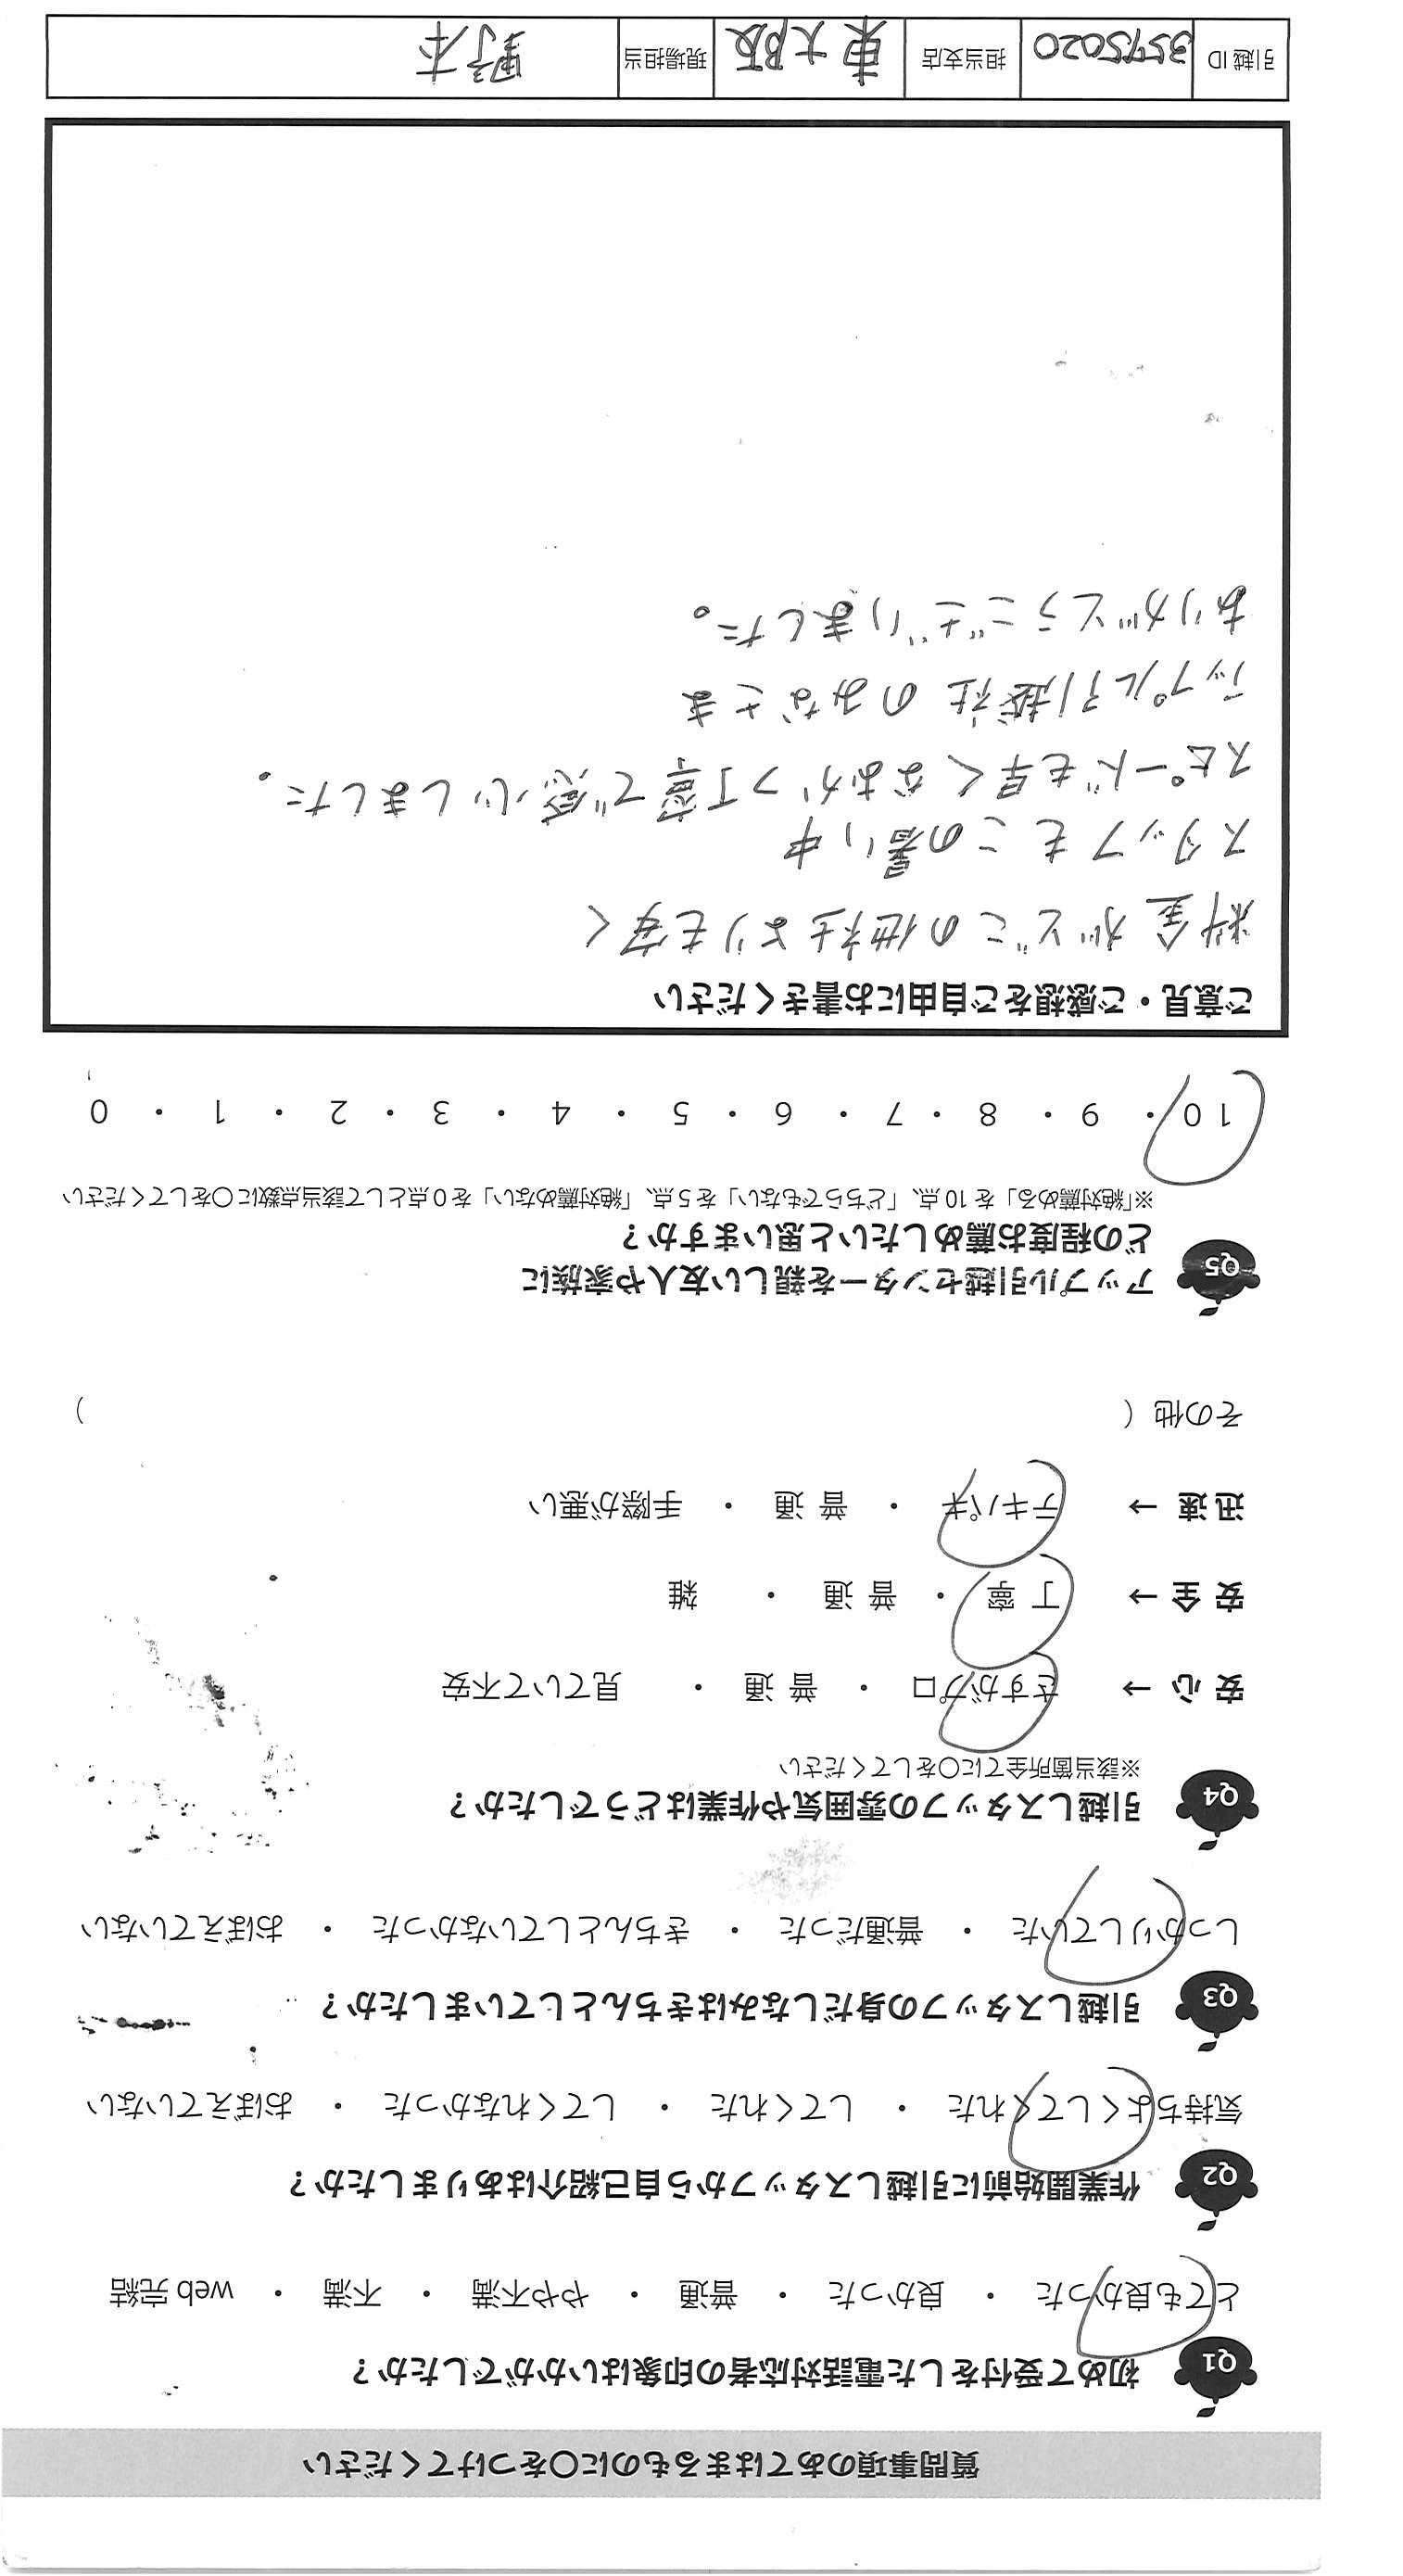 質問事項のあてはまるものに〇をつけてください
Q1 初めて受付をした電話対応者の印象はいかがでしたか?
とても良かった ・ 良かった ・ 普通 ・ やや不満 ・ 不満 ・ web 完結
Q2 作業開始前に引越しスタッフから自己紹介はありましたか?
気持ちよくしてくれた ・ してくれた ・ してくれなかった ・ おぼえていない
Q3 引越しスタッフの身だしなみはきちんとしていましたか?
しっかりしていた ・ 普通だった ・ きちんとしていなかった ・ おぼえていない
Q4 引越しスタッフの雰囲気や作業はどうでしたか?
※該当箇所全てに〇をしてください
安 心 → さすがプロ ・ 普 通 ・ 見ていて不安
安 全 → 丁 寧 ・ 普 通 ・ 雑
迅 速 → テキパキ ・ 普 通 ・ 手際が悪い
その他 ( )
Q5 アップル引越センターを親しい友人や家族に
どの程度お薦めしたいと思いますか?
※「絶対薦める」を 10 点、「どちらでもない」を 5 点、「絶対薦めない」を 0 点として該当点数に〇をしてください
10 ・ 9 ・ 8 ・ 7 ・ 6 ・ 5 ・ 4 ・ 3 ・ 2 ・ 1 ・ 0
ご意見・ご感想をご自由にお書きください
料金がどこの他社よりも安く
スタッフもこの暑い中
スピードも早くなおかつ丁寧で感心しました。
アップル引越社のみなさま
ありがとうございました。
引越 ID 担当支店 東大阪 現場担当 野本